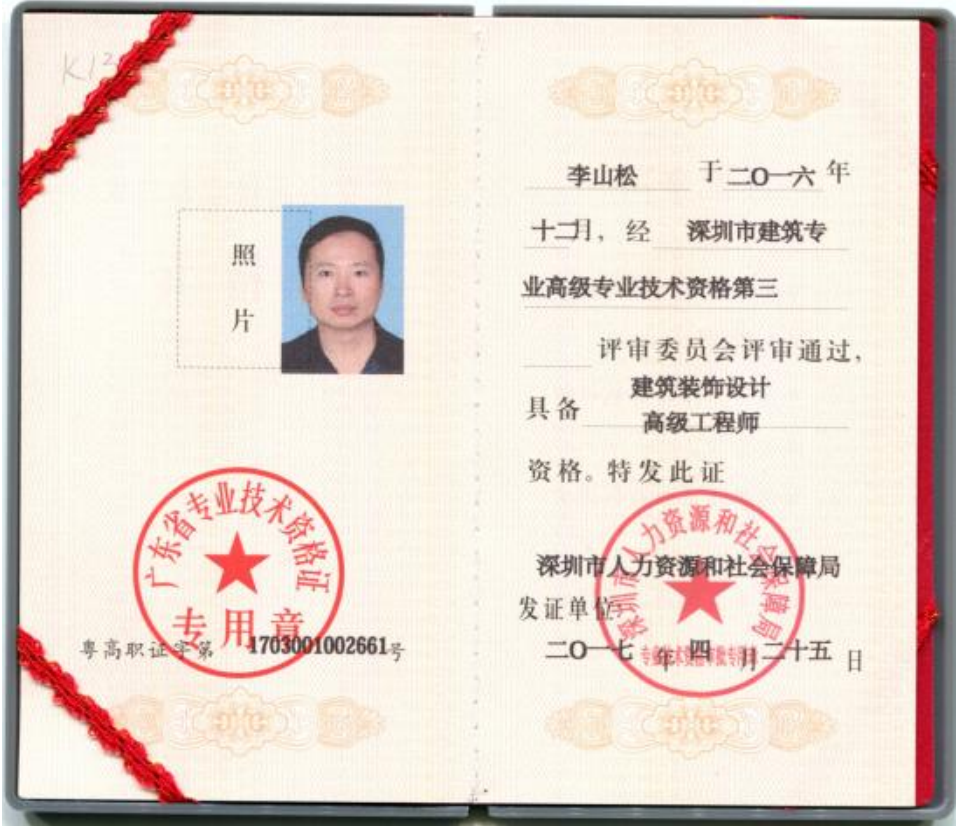 K12
照
片
广东省专业技术资格证
专用章
粤高职证字第 1703001002661号
李山松 于二〇一六年
十二月，经 深圳市建筑专
业高级专业技术资格第三
评审委员会评审通过，
建筑装饰设计
具备
高级工程师
资格。特发此证
深圳市人力资源和社会保障局
深圳市人力资源和社会保障局
发证单位
二〇一七年四月二十五日